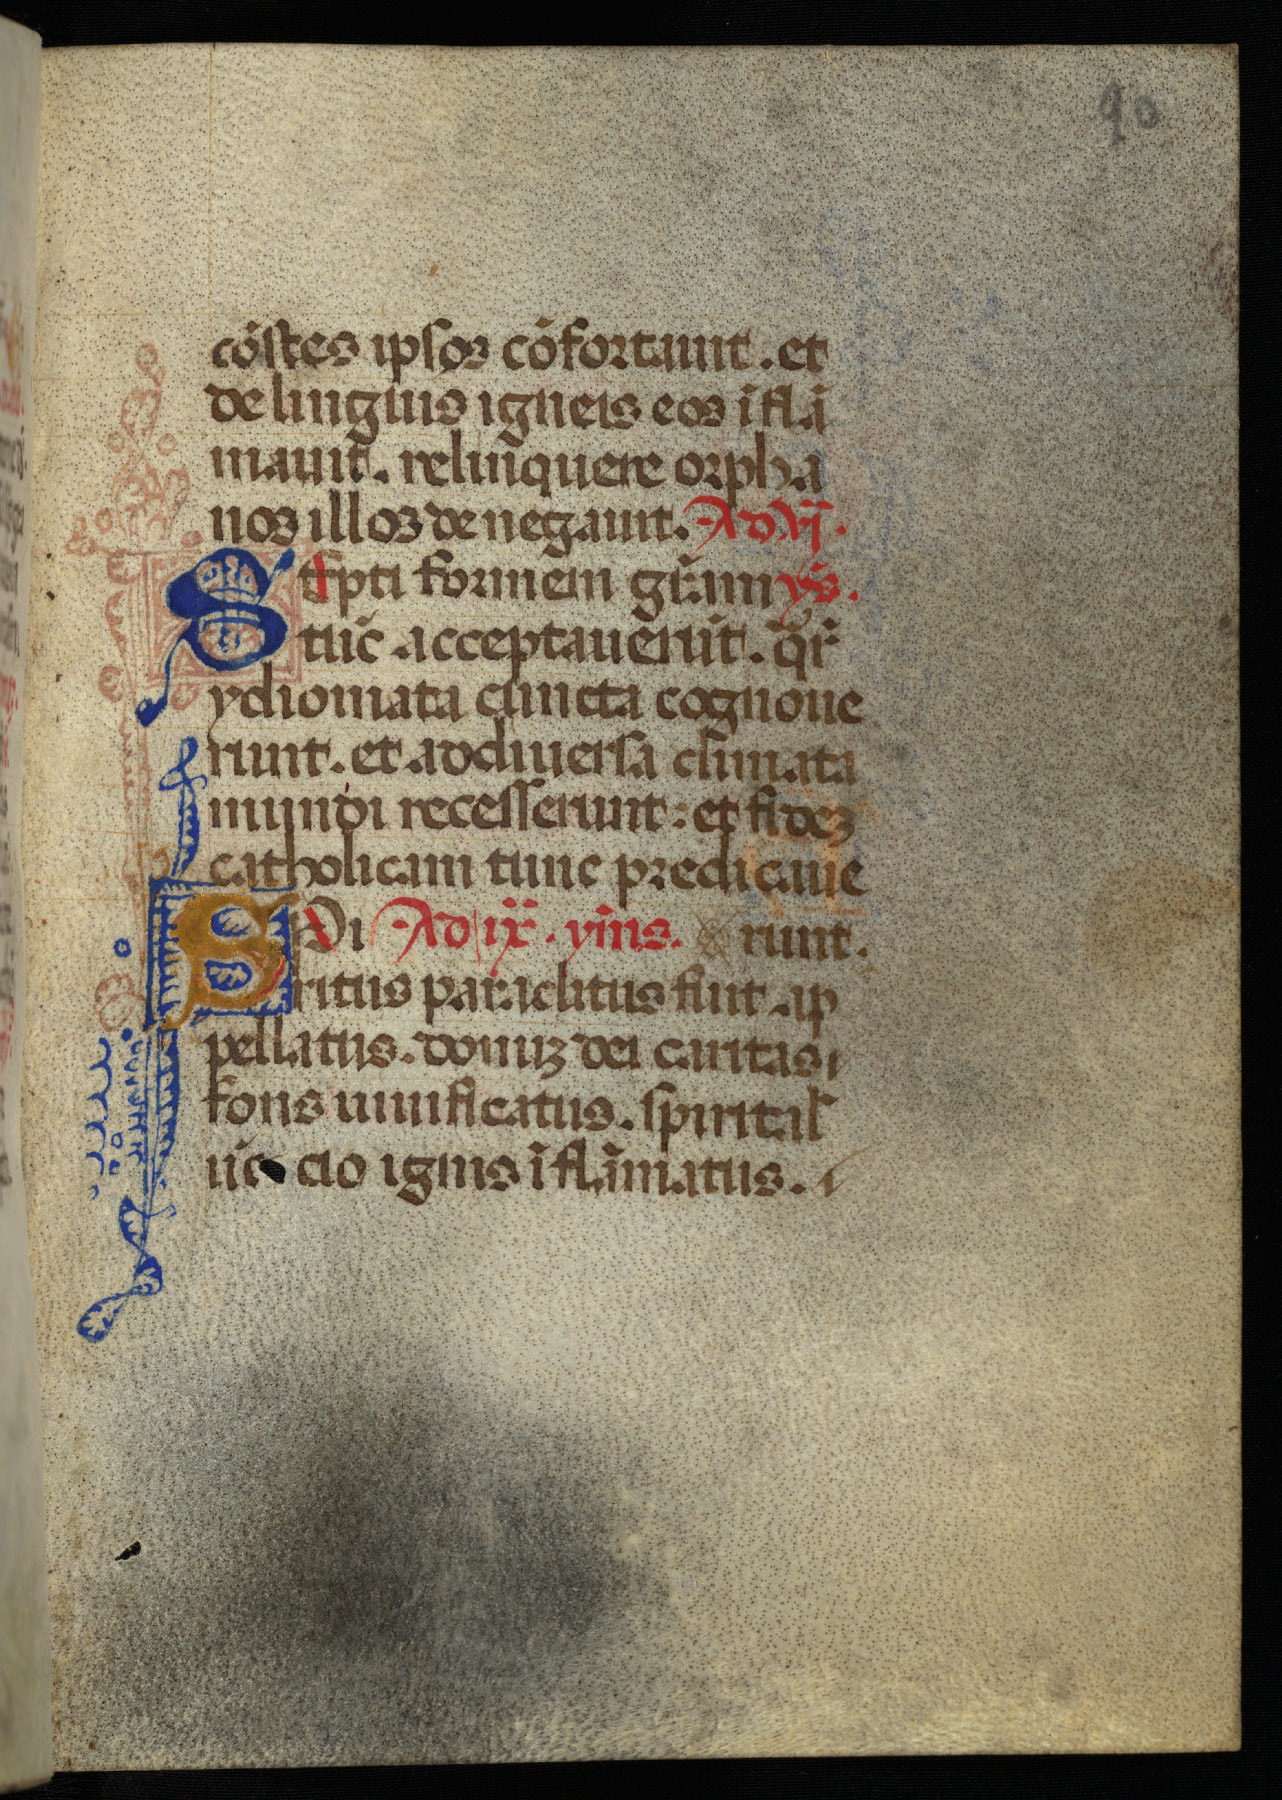 90
cōstes ipsos cōfortauit. et
de linguis igneis eos īflā
mauit. relinquere orpha
nos illos denegauit. Ad vj.
Septi formem grām yꝰ.
tūc acceptauerūt. q̄r
ydiomata cuncta cognoue
runt. et ad diuersa climata
mundi recesserunt: et fidez
catholicam tunc predicaue
Spi Ad ix. ymns. runt.
ritus paraclitus fuit ap
pellatus. donuz dei caritas
fons uiuificatus. spirital̄
ūctio ignis īflāmatus.